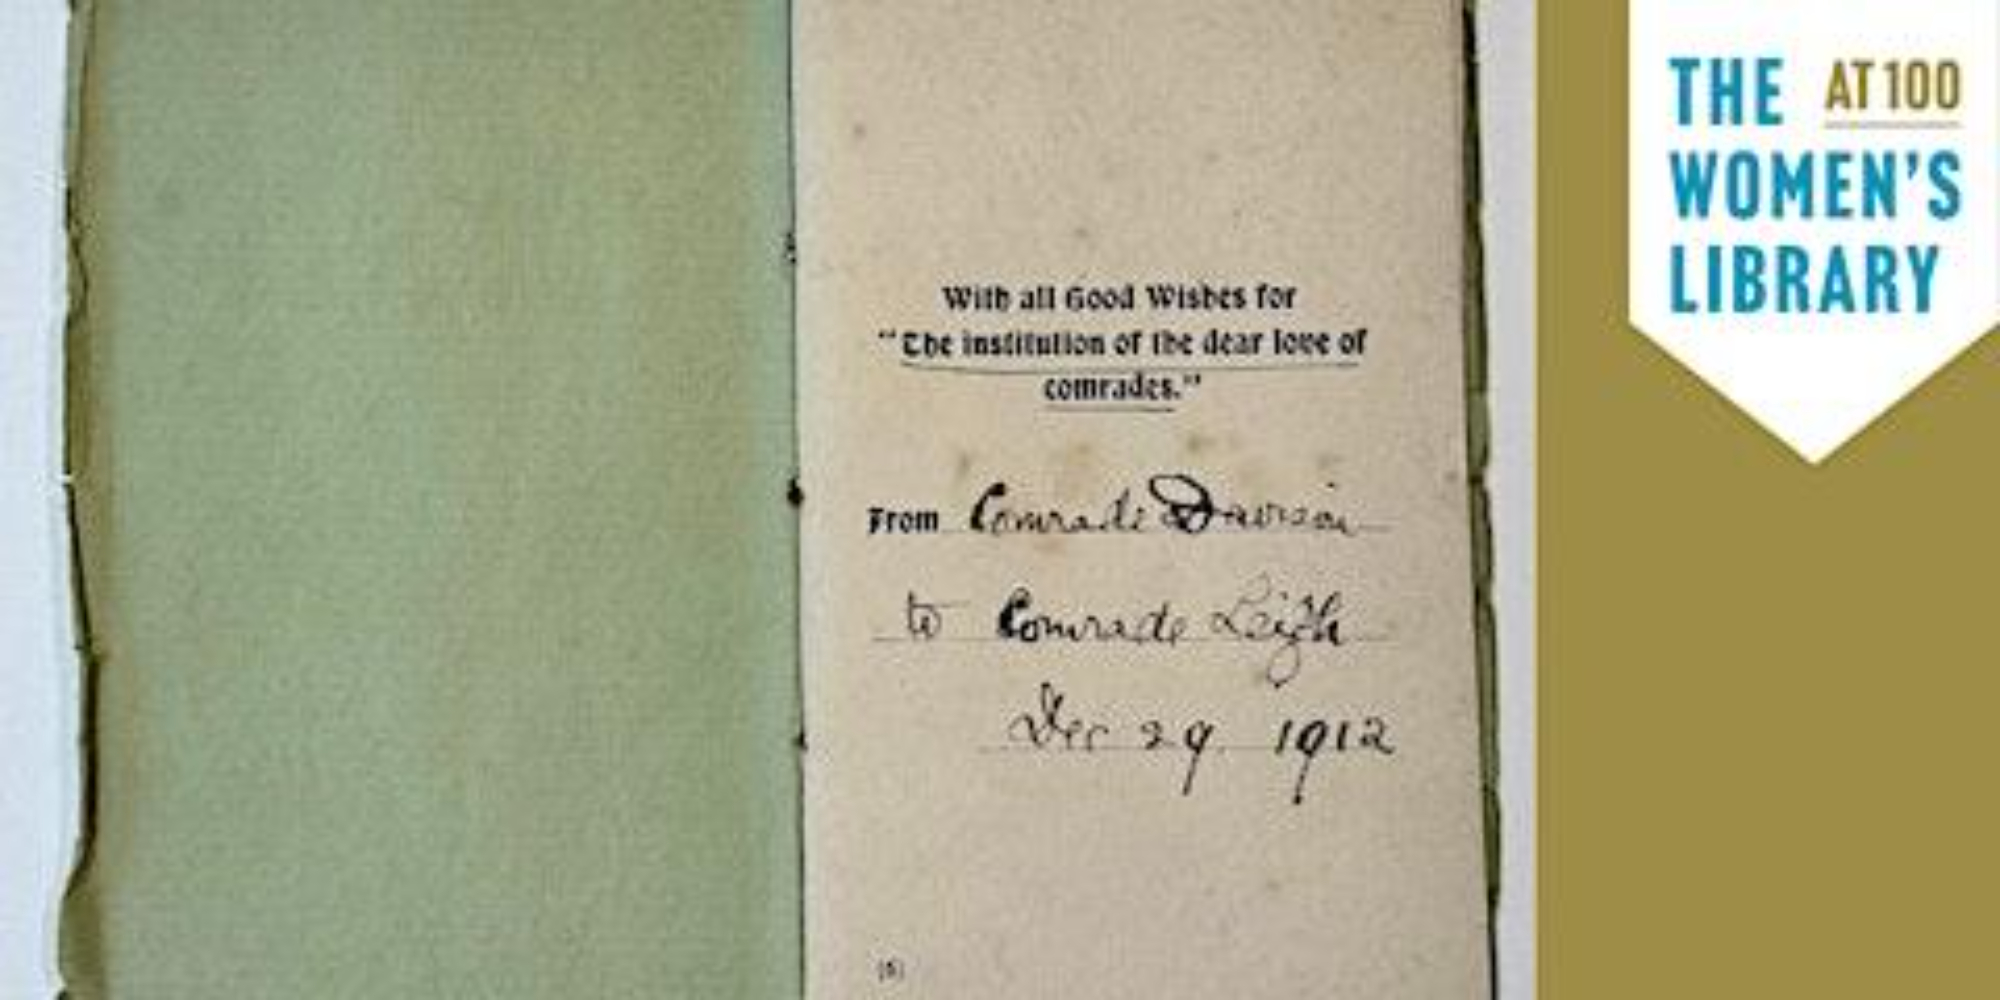 With all Good Wishes for
"The institution of the dear love of
comrades."
From Comrade Davison
to Comrade Leigh
Dec 29. 1912
(6)
THE AT 100
WOMEN'S
LIBRARY